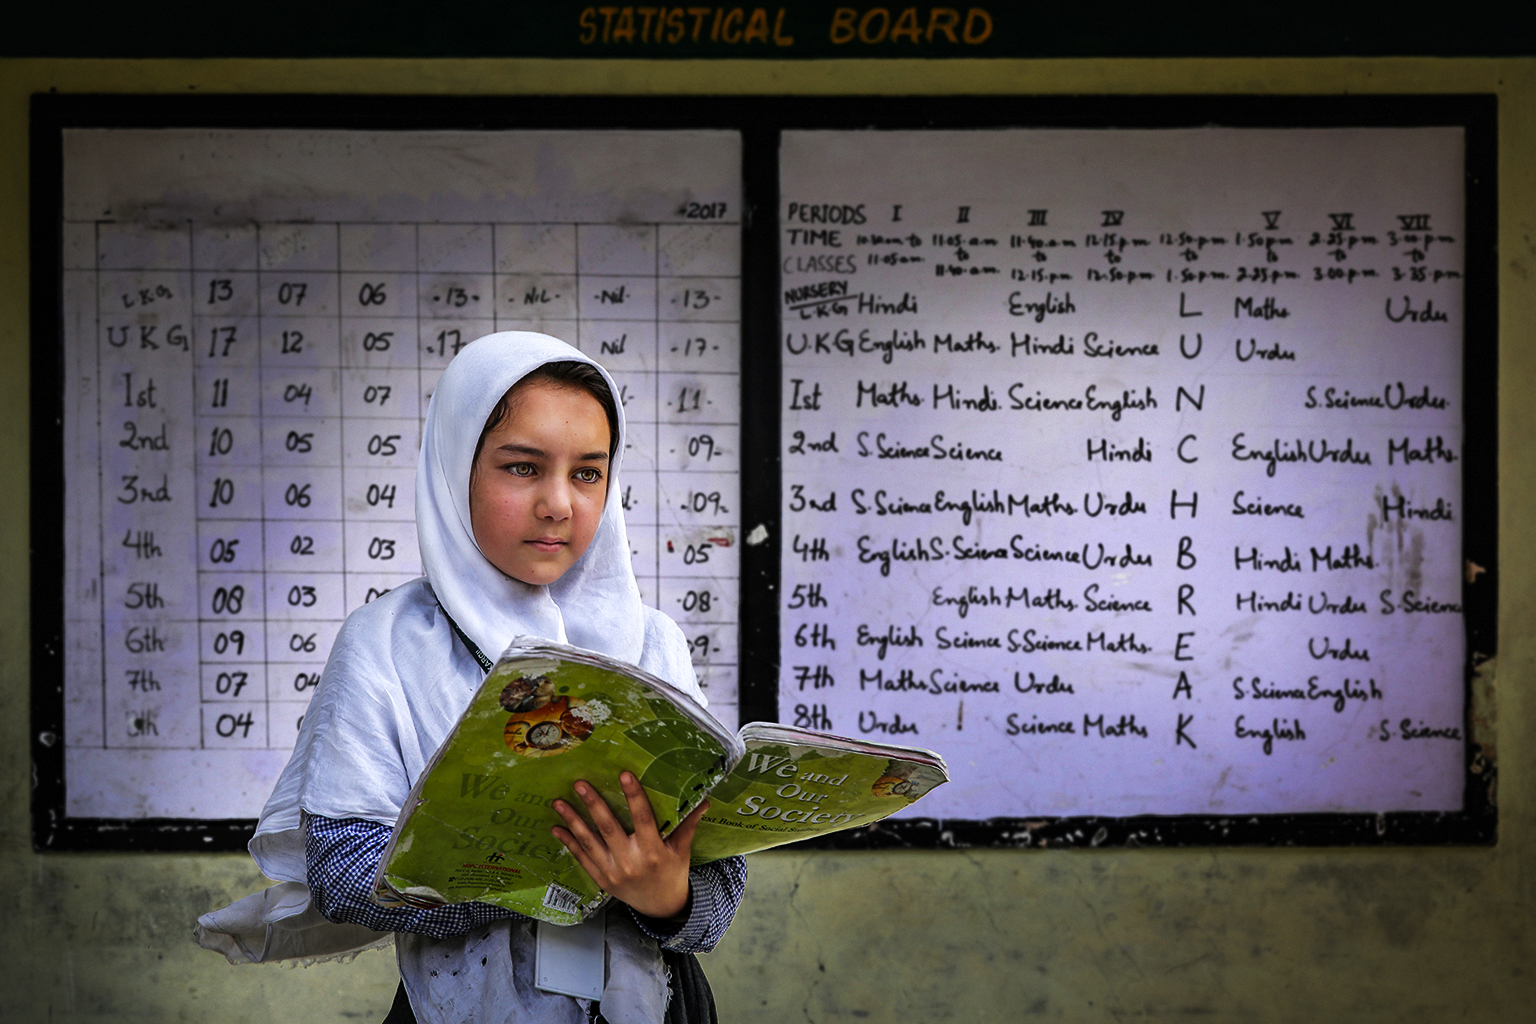 STATISTICAL BOARD
-2017
LKG 13 07 06 -13- -NIL- -Nil- -13-
U.K.G 17 12 05 -17- Nil -17-
1st 11 04 07 -11-
2nd 10 05 05 09-
3rd 10 06 04 -09-
4th 05 02 03 05
5th 08 03 -08-
6th 09 06
7th 07 04
8th 04
PERIODS I II III IV V VI VII
TIME 10.30am to 11.05.a.m 11.40.a.m 12.15.p.m 12.50.p.m 1.50p.m 2.25.p.m 3.00p.m
to to to to to to
CLASSES 11.05am 11.40.a.m 12.15.p.m 12.50.p.m 1.50p.m 2.25p.m 3.00p.m 3.35.p.m
NURSERY
LKG Hindi English L Maths Urdu
U.KG English Maths. Hindi Science U Urdu
1st Maths. Hindi. Science English N S.Science Urdu.
2nd S.Science Science Hindi C English Urdu Maths.
3rd S.Science English Maths. Urdu H Science Hindi
4th English S.Science Science Urdu B Hindi Maths.
5th English Maths. Science R Hindi Urdu S.Science
6th English Science S.Science Maths. E Urdu
7th Maths Science Urdu A S.Science English
8th Urdu Science Maths K English S.Science
We and
Our
Society
We and
Our
Society
Text Book of Social